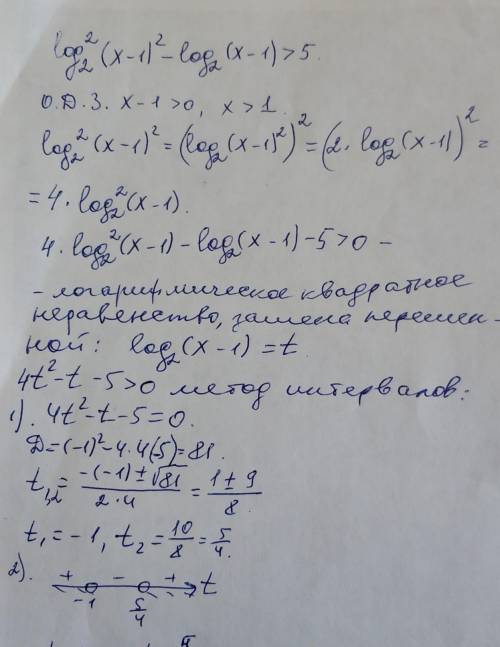 log₂²(x-1)² - log₂(x-1) > 5.
О.Д.З. x-1>0, x>1.
log₂²(x-1)² = (log₂(x-1)²)² = (2·log₂(x-1))² =
= 4·log₂²(x-1).
4·log₂²(x-1) - log₂(x-1) - 5 > 0 -
- логарифмическое квадратное
неравенство, замена перемен-
ной: log₂(x-1) = t.
4t²-t-5>0 метод интервалов:
1). 4t²-t-5=0.
D=(-1)²-4·4(-5)=81.
t₁,₂ = (-(-1)±√81)/(2·4) = (1±9)/8
t₁ = -1, t₂ = 10/8 = 5/4.
2). + - + t
-1 5/4